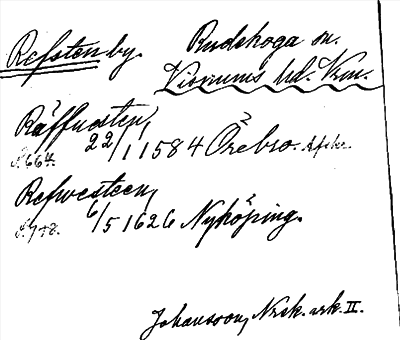 Refsten by. Rudskoga sn.
Visnums hd. Vrm.
Räffuesten,
S. 664. 22/11 1584 Örebro. Afskr.
Refwesteen,
S. 748. 6/5 1626 Nyköping.
Johansson, Nrk. urk. II.